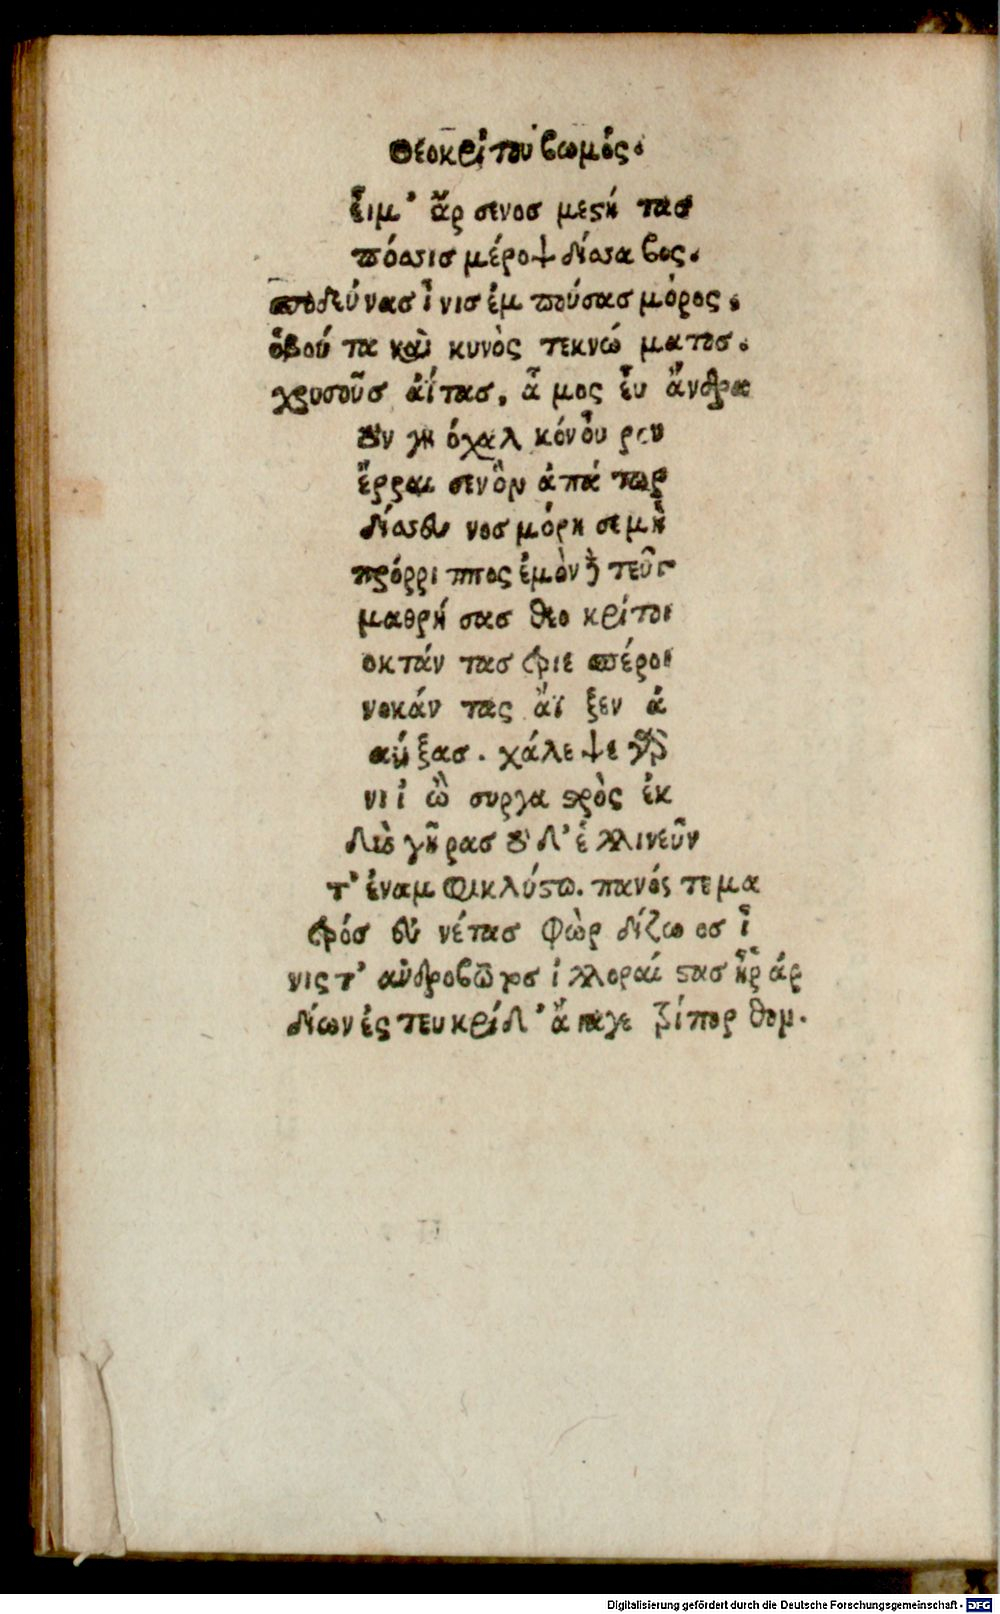 Θεοκρίτου βωμός.
εἶμ' ἄρ σενοσ μεστή τασ
πόασισ μέροψ δίσαβος.
σποδεύνασ ἶνισ ἐμ πούσασ μόρος.
ὁβού τα καὶ κυνὸς τεκνώ ματος.
χρυσοῦσ ἀΐτασ, ἆ μος ἑυ ἄνδρα
ὃν γυιόχαλ κόνοὖ ρευ
ἔρραι σενὃν ἀπά τωρ
νοσ μόρη σεμὴ
πρόρρι πτος ἐμὸν τεῦξ
μαθρή σασ θεο κρίτοι
οκτάν τασ φιε σπέροι
νοκάν τας ἄϊ ξεν ἀ
αύ ξασ. χάλεψε γάρ
νιἰ ὢ συργα στρὸς ἐκ
δὶσ γῆρασ οὐδ' ἐλλινεῦν
τ' ἐναμ φικλύστω. πανός τε μα
τρόσ εὐ νέτασ φὼρ δίζω οσ ἶ
νις τ' ἀνδροβῶρσ ἰλλοραί στασ ἦρ άρ
δίων ἐς τευκρίδ' ἄπαγε ξίπορ θομ.
Digitalisierung gefördert durch die Deutsche Forschungsgemeinschaft - DFG